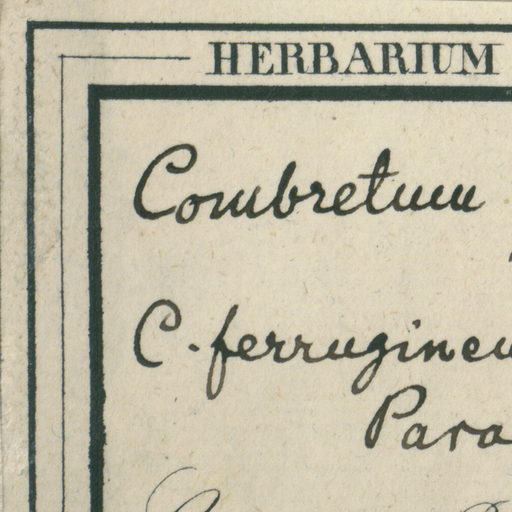 HERBARIUM
Combretum
C. ferrugineu
Para